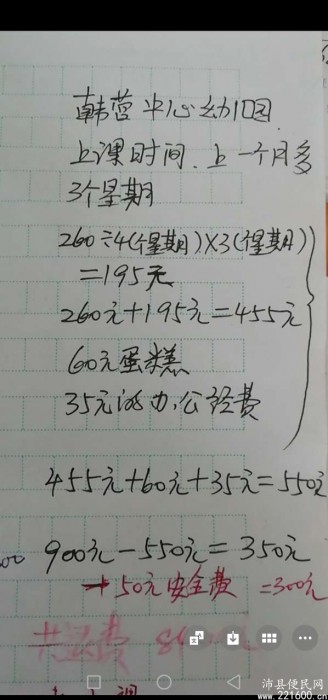 韩营中心幼儿园
上课时间.上一个月多
3个星期
260÷4(个星期)×3(个星期)
=195元
260元+195元=455元
60元蛋糕
35元 办.公经费
455元+60元+35元=550元
900元-550元=350元
50元安全费 =300元
共 费
沛县便民网
www.221600.cn